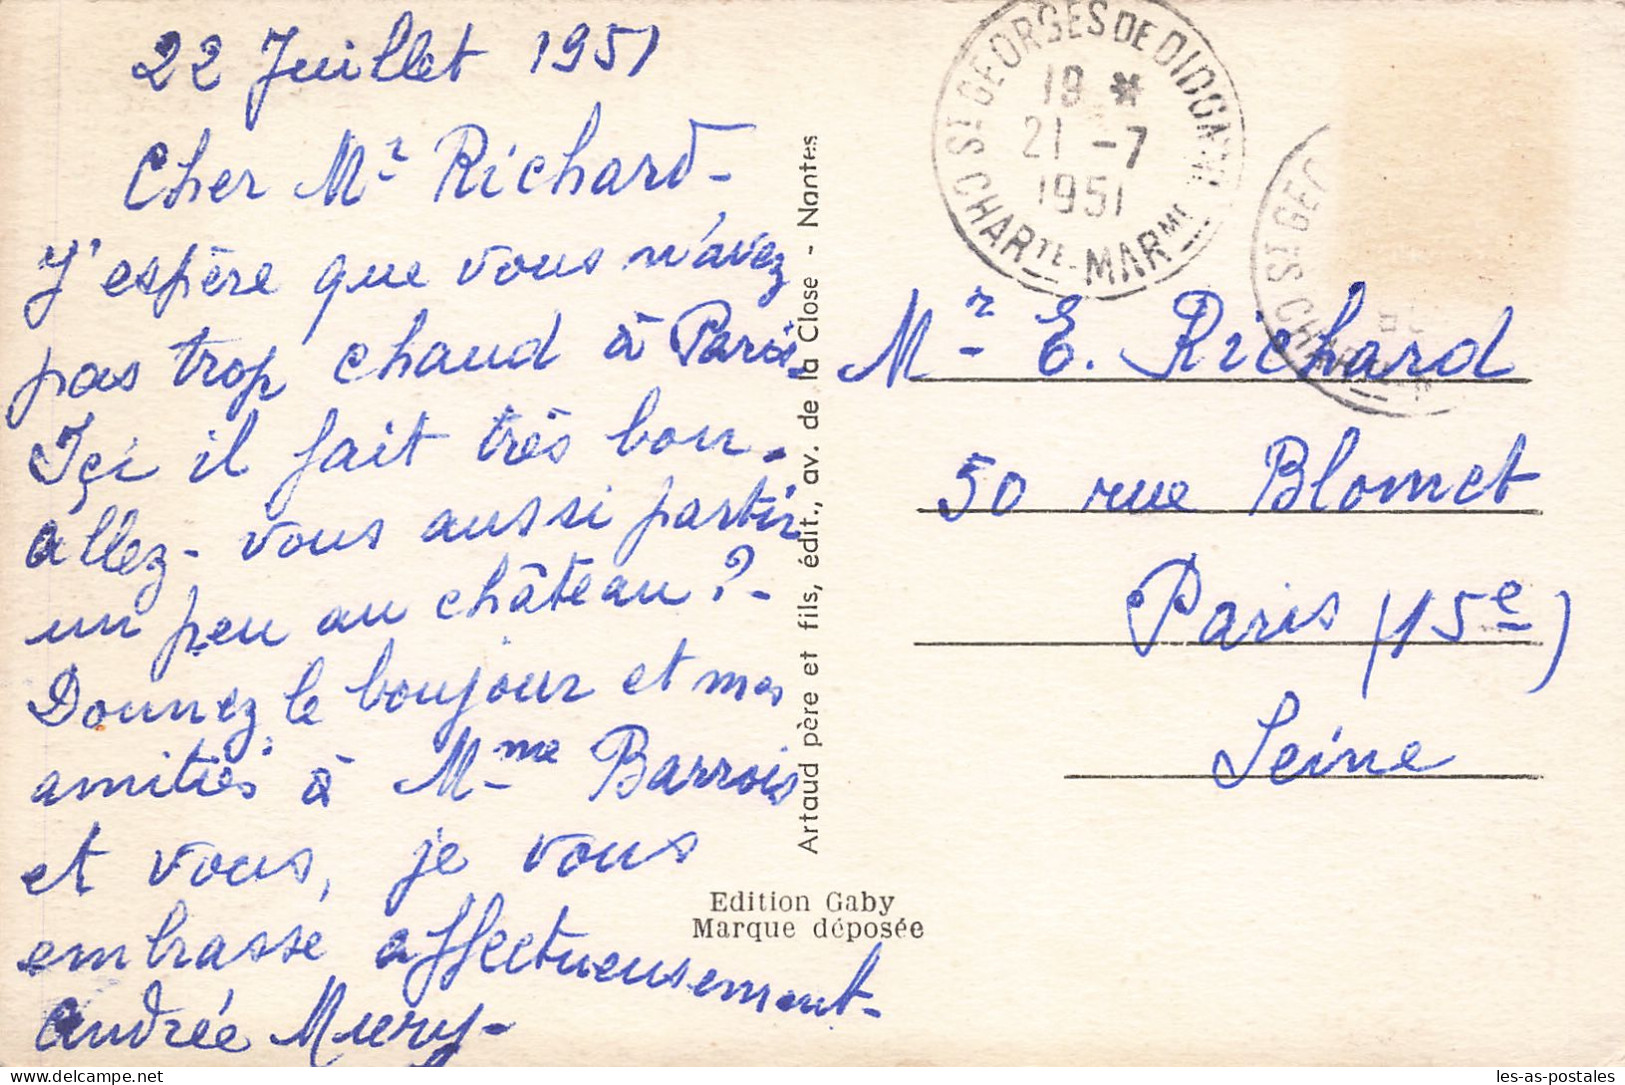 22 Juillet 1951
Cher Mr Richard-
J'espère que vous n'avez
pas trop chaud à Paris.
Içi il fait très bon.
allez-vous aussi partir
un peu au château?-
Donnez le bonjour et mes
amitiés à Mme Barrois
et vous, je vous
embrasse affectueusement-
Andrée
Artaud père et fils, édit., av. de la Close - Nantes
Edition Gaby
Marque déposée
ST GEORGES DE DIDONNE
19 *
21 -7
1951
CHARTE-MARME
ST GEO
Mr E. Richard
50 rue Blomet
Paris (15e)
Seine
Delcampe.net
les-as-postales